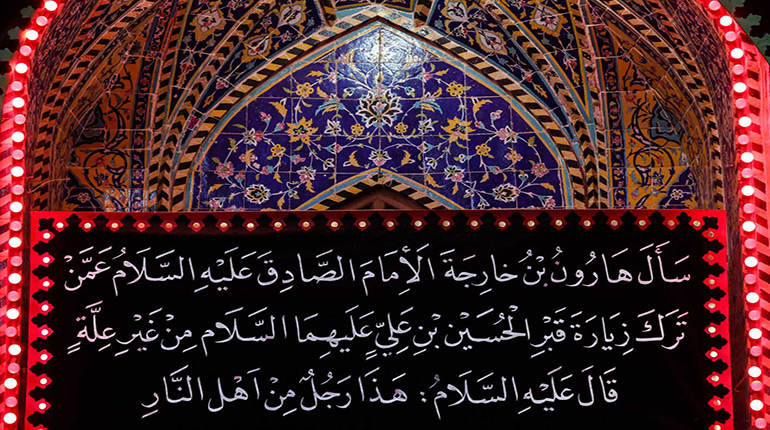 سَأَلَ هَارُونُ بْنُ خارِجَةَ الْأِمَامَ الصَّادِقَ عَلَيْهِ السَّلَامُ عَمَّنْ
تَرَكَ زِيَارَةَ قَبْرِ الْحُسَيْنِ بْنِ عَلِيٍّ عَلَيهِمَا السَّلَام مِنْ غَيْرِ عِلَّةٍ
قَالَ عَلَيْهِ السَّلَامُ: هَذَا رَجُلٌ مِنْ اَهْلِ النَّارِ